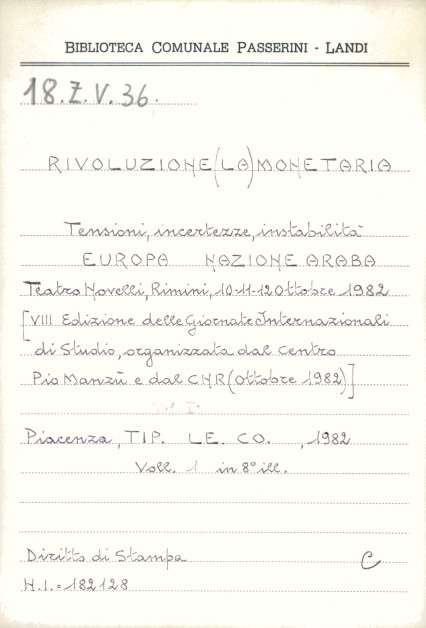 BIBLIOTECA COMUNALE PASSERINI - LANDI
18.Z.V.36.
RIVOLUZIONE (LA) MONETARIA
Tensioni, incertezze, instabilità
EUROPA NAZIONE ARABA
Teatro Novelli, Rimini, 10-11-12 Ottobre 1982
[VIII Edizione delle Giornate Internazionali
di Studio, organizzata dal Centro
Pio Manzù e dal CNR (Ottobre 1982)]
Piacenza, TIP. LE. CO. , 1982
Voll. 1 in 8º ill.
Diritto di Stampa C
N.I. = 182128